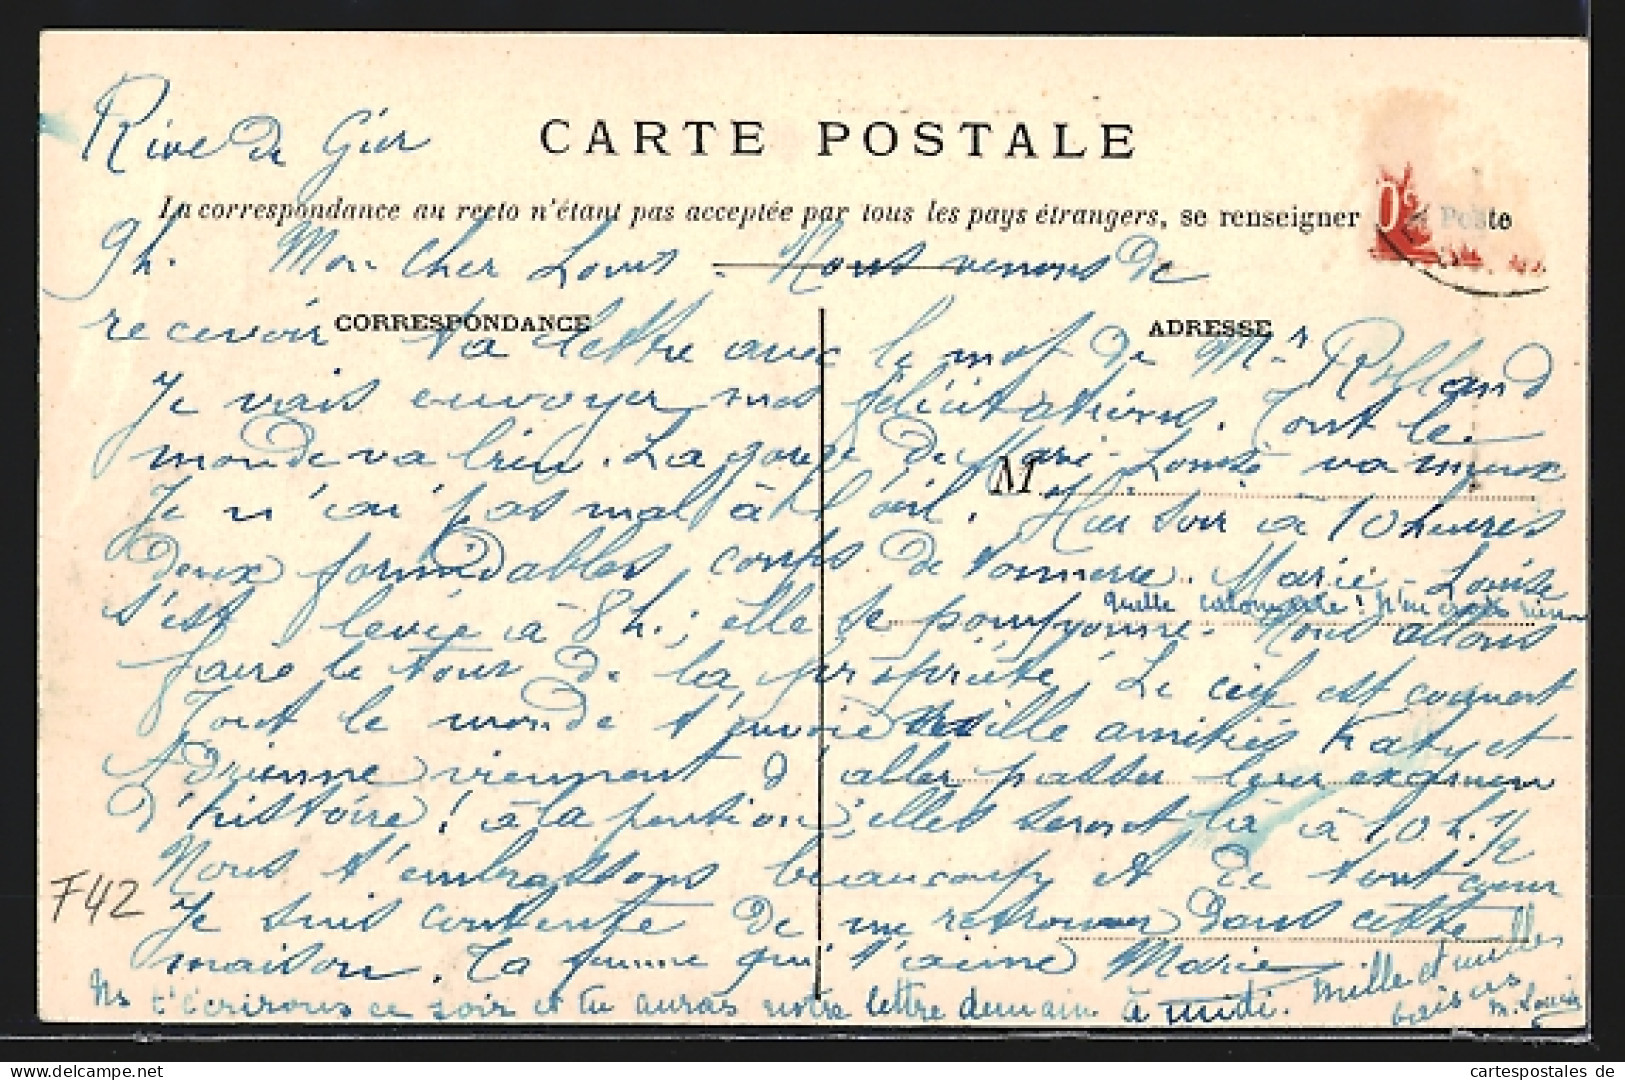 Rive de Gier
CARTE POSTALE
La correspondance au recto n'étant pas acceptée par tous les pays étrangers, se renseigner à la Poste
9h. Mon cher Louis. Nous venons de
CORRESPONDANCE
ADRESSE
recevoir ta lettre avec le mot de Mr Rolland
Je vais envoyer mes félicitations. Tout le
monde va bien. La gorge de Marie-Louise va mieux
M
Je n'ai pas mal à l'œil. Hier soir à 10 heures
deux formidables coups de tonnerre. Marie-Louise
quelle calomnie ! n'en crois rien
s'est levée à 8h. ; elle se pomponne. Nous allons
faire le tour de la propriété. Le ciel est couvert
Tout le monde t'envoie mille amitiés Katy et
Adrienne viennent d'aller passer leur examen
d'histoire ! à la pension ; elles seront là à 10h. 1/2
Nous t'embrassons beaucoup et de tout cœur
F42
Je suis contente de me retrouver dans cette
maison. Ta femme qui t'aime Marie
Ns t'écrirons ce soir et tu auras notre lettre demain à midi.
Mille et milles
baisers
M. Louise
cartespostales de